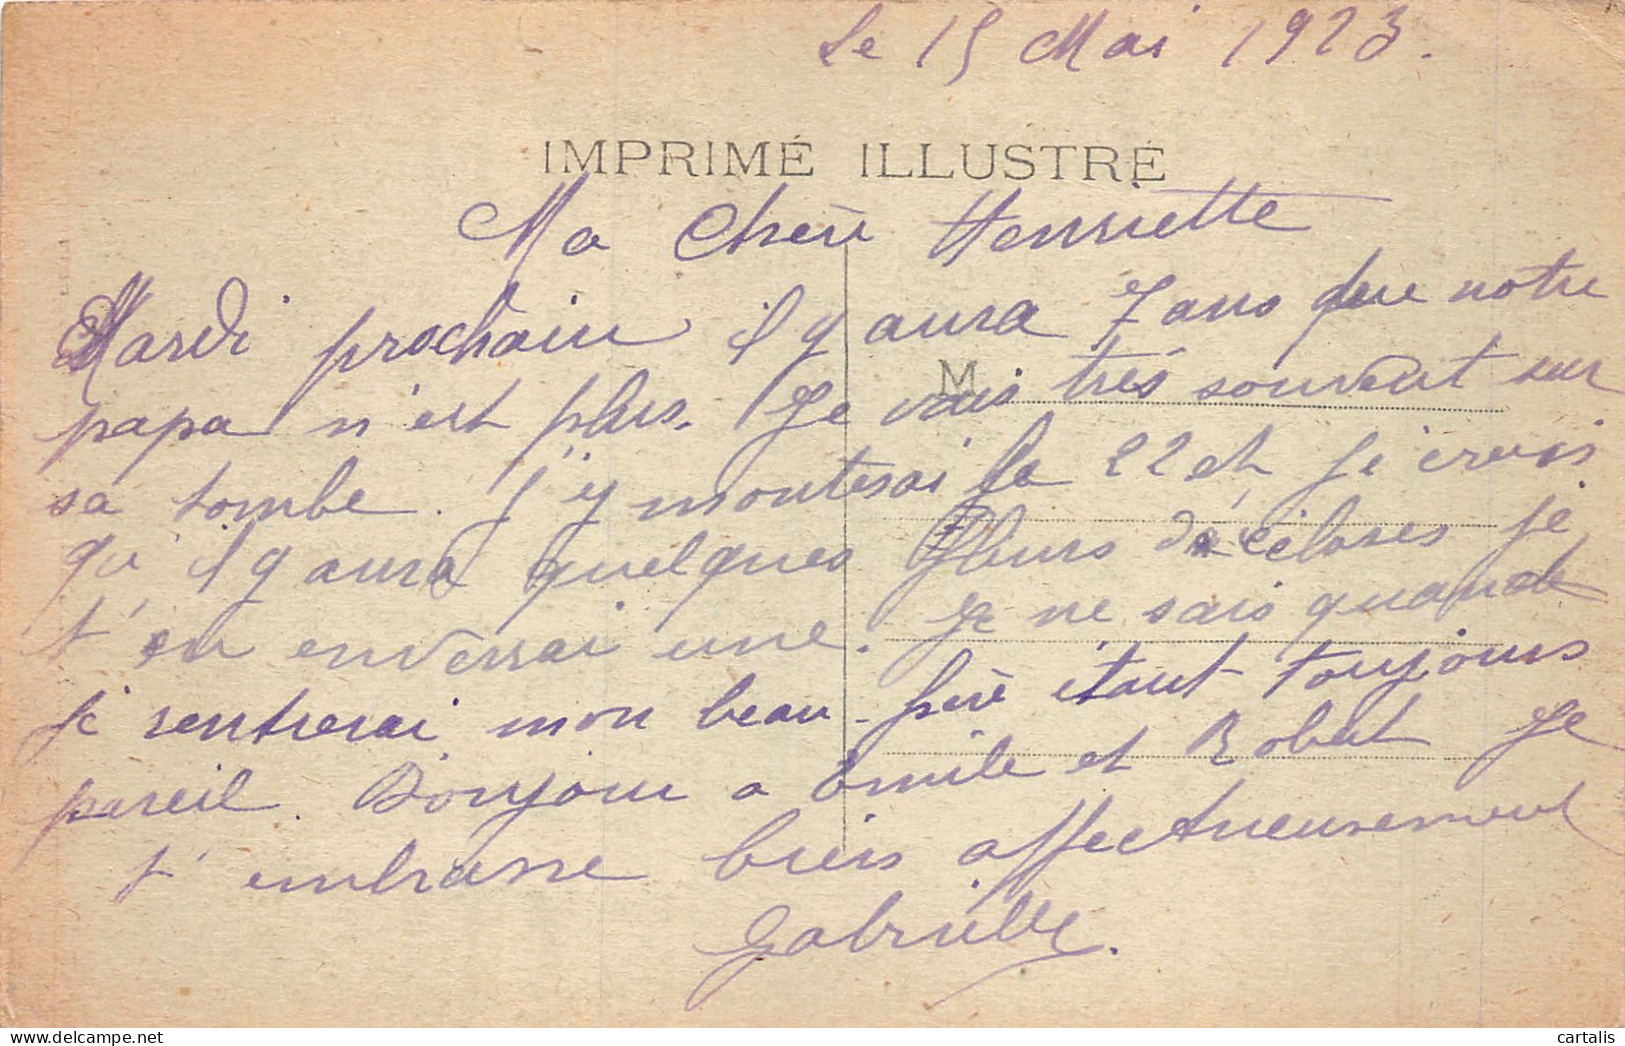 Le 15 Mai 1923.
IMPRIMÉ ILLUSTRÉ
Ma Chère Henriette
Mardi prochain il y aura 7 ans que notre
papa n'est plus. Je vais très souvent sur
M
sa tombe. J'y monterai le 22 et je crois
qu'il y aura quelques fleurs d'écloses je
t'en enverrai une. Je ne sais quand
je rentrerai mon beau-père étant toujours
pareil. Bonjour a Emile et Robert Je
t'embrasse bien affectueusement
Gabrielle.
cartalis